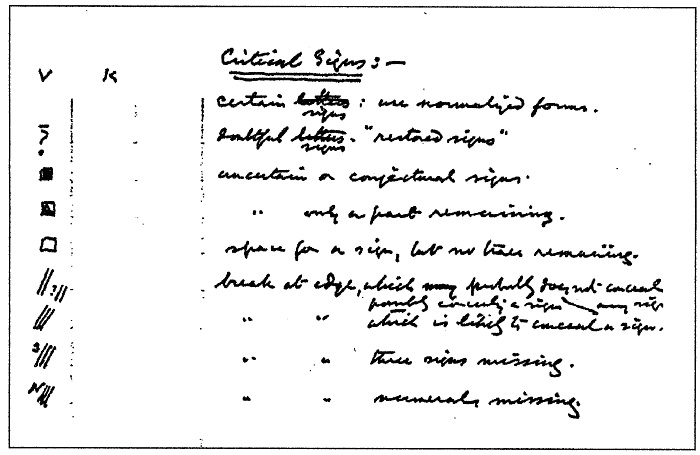 Critical Signs :—
V K
certain letters signs : use normalized forms.
? doubtful letters signs. "restored signs"
uncertain or conjectural signs.
" only a part remaining.
space for a sign, but no traces remaining.
? break at edge, which may probably does not conceal any sign
possibly conceals a sign
" " which is likely to conceal a sign.
3 " " three signs missing.
N " " numerals missing.